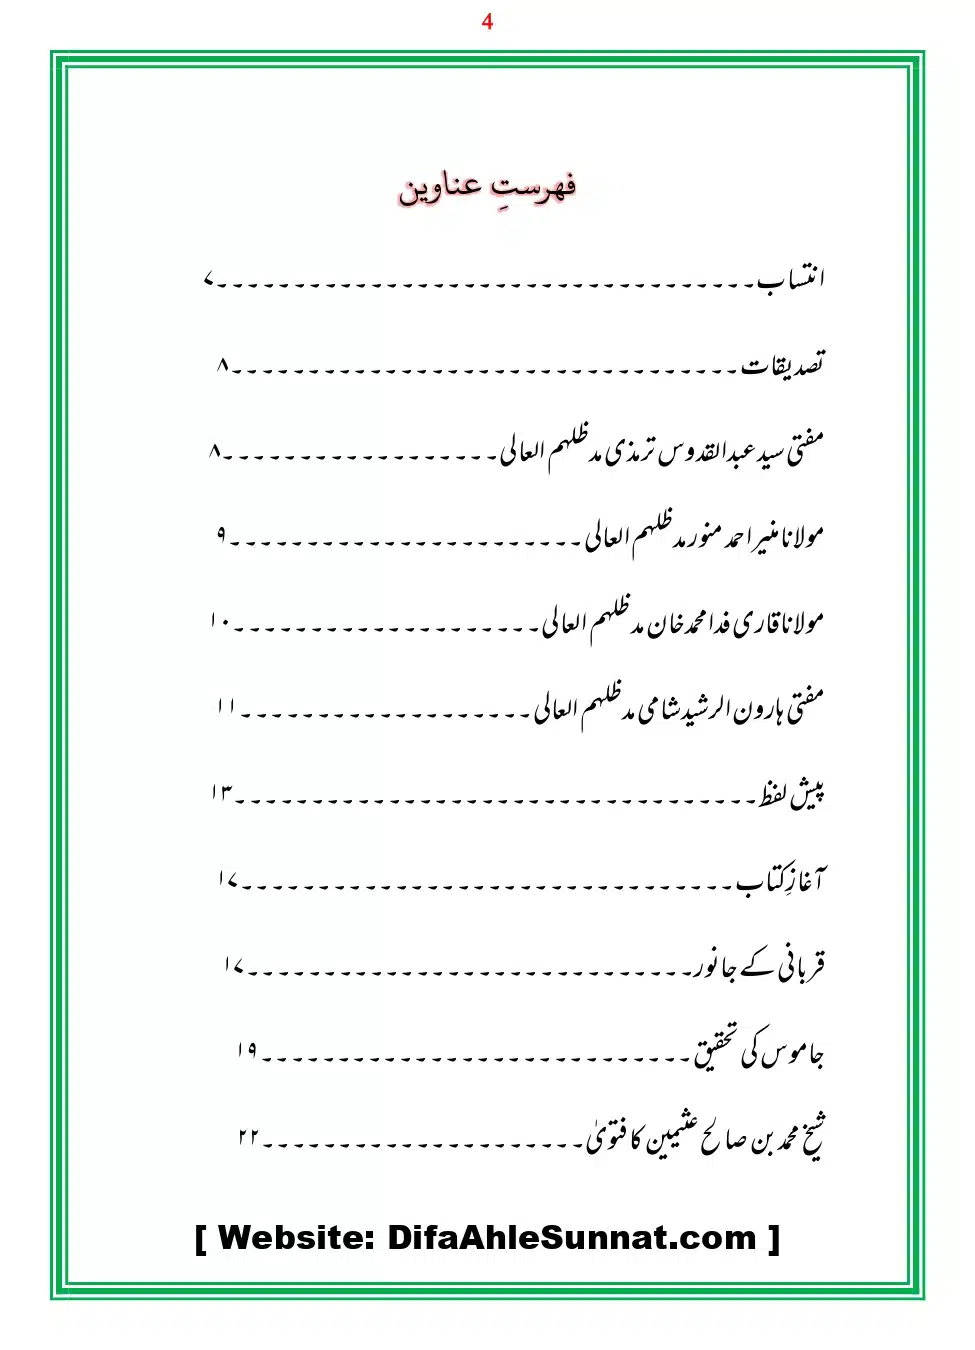 4
فہرستِ عناوین
انتساب۔۔۔۔۔۔۔۔۔۔۔۔۔۔۔۔۔۔۔۔۔۔۔۔۔۔۔۔۔۔۔۔۔۔۔۷
تصدیقات۔۔۔۔۔۔۔۔۔۔۔۔۔۔۔۔۔۔۔۔۔۔۔۔۔۔۔۔۔۔۔۔۔۸
مفتی سید عبدالقدوس ترمذی مدظلہم العالی۔۔۔۔۔۔۔۔۔۔۔۔۔۔۔۔۔۔۸
مولانا منیر احمد منور مدظلہم العالی۔۔۔۔۔۔۔۔۔۔۔۔۔۔۔۔۔۔۔۔۔۔۔۹
مولانا قاری فدا محمد خان مدظلہم العالی۔۔۔۔۔۔۔۔۔۔۔۔۔۔۔۔۔۔۔۔۱۰
مفتی ہارون الرشید شامی مدظلہم العالی۔۔۔۔۔۔۔۔۔۔۔۔۔۔۔۔۔۔۔۱۱
پیش لفظ۔۔۔۔۔۔۔۔۔۔۔۔۔۔۔۔۔۔۔۔۔۔۔۔۔۔۔۔۔۔۔۔۔۔۱۳
آغازِ کتاب۔۔۔۔۔۔۔۔۔۔۔۔۔۔۔۔۔۔۔۔۔۔۔۔۔۔۔۔۔۔۔۔۱۷
قربانی کے جانور۔۔۔۔۔۔۔۔۔۔۔۔۔۔۔۔۔۔۔۔۔۔۔۔۔۔۔۔۔۱۷
جاموس کی تحقیق۔۔۔۔۔۔۔۔۔۔۔۔۔۔۔۔۔۔۔۔۔۔۔۔۔۔۔۔۱۹
شیخ محمد بن صالح عثیمین کا فتویٰ۔۔۔۔۔۔۔۔۔۔۔۔۔۔۔۔۔۔۔۔۔۲۲
[ Website: DifaAhleSunnat.com ]